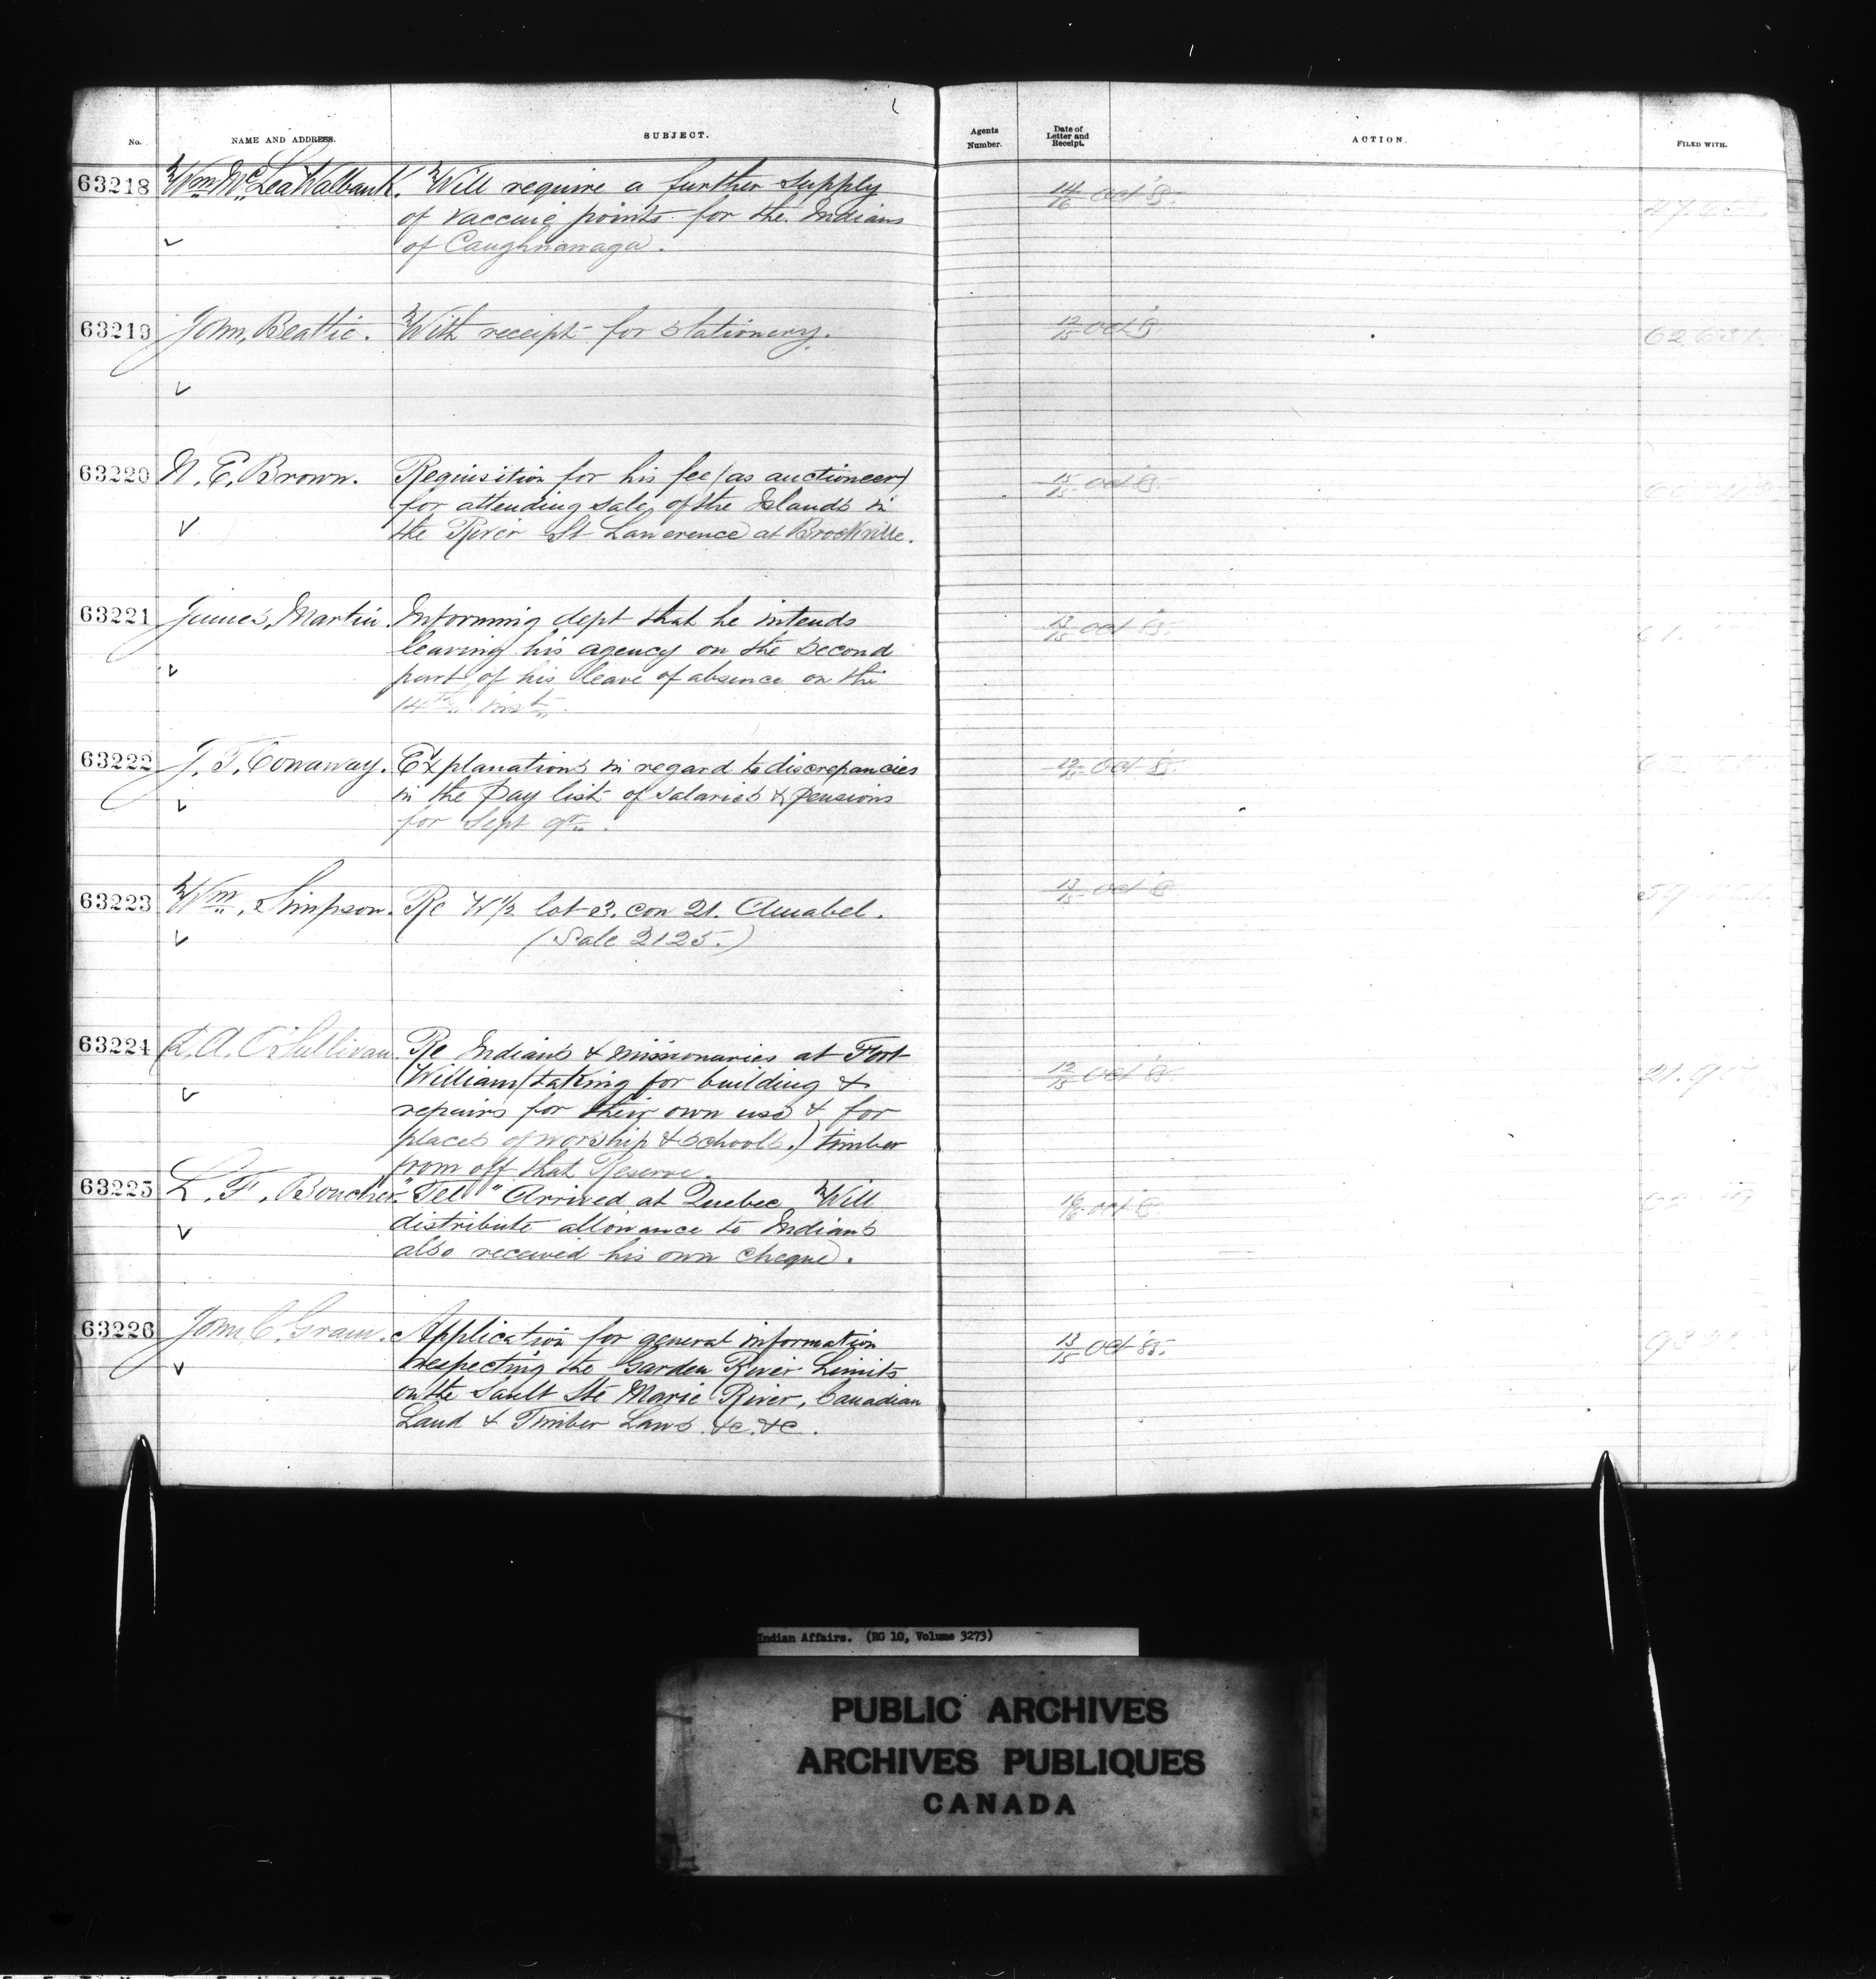 No. NAME AND ADDRESS. SUBJECT. Agents Number. Date of Letter and Receipt. ACTION. FILED WITH.
63218 Wm Mc Lea Walbank. Will require a further supply 14/16 Oct '85.
of vaccine points for the Indians
of Caughnawaga.
63219 John Beattie. With receipt for stationery. 12/15 Oct 85 62.631.
63220 N. E. Brown. Requisition for his fee (as auctioneer) 15/15 Oct 85.
for attending sale of the Islands in
the River St Lawerence at Brockville.
63221 James Martin. Informing dept that he intends 13/15 Oct 85.
leaving his agency on the second
part of his leave of absence on the
14th inst.
63222 J. T. Conaway. Explanations in regard to discrepancies 12/15 Oct 85.
in the pay list of salaries & pensions
for Sept qr.
63223 Wm Simpson. Re W 1/2 lot 3. con 21. Amabel. 13/15 Oct 85
(Sale 2125.)
63224 D. A. O'Sullivan Re Indians & missionaries at Fort
William (taking for building & 12/15 Oct 85
repairs for their own use & for
places of worship & schools.) timber
from off that Reserve.
63225 L. F. Boucher "Tel" Arrived at Quebec Will 16/16 Oct 85
distribute allowance to Indians
also received his own cheque.
63226 John C. Gram. Application for general information 13/15 Oct '85.
respecting the Garden River Limits
on the Sault Ste Marie River, Canadian
Land & Timber Laws &c. &c.
Indian Affairs. (RG 10, Volume 3273)
PUBLIC ARCHIVES
ARCHIVES PUBLIQUES
CANADA